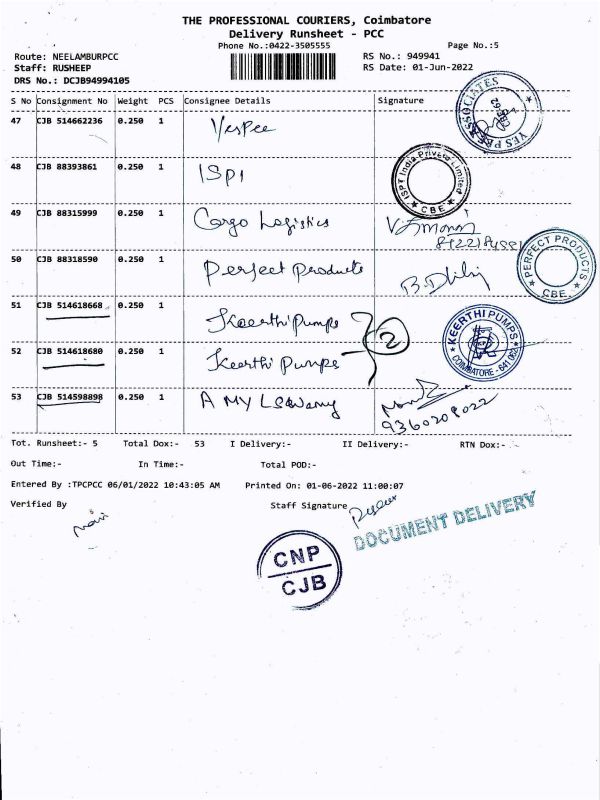 THE PROFESSIONAL COURIERS, Coimbatore
Delivery Runsheet - PCC
Phone No.:0422-3505555 Page No.:5
Route: NEELAMBURPCC RS No.: 949941
Staff: RUSHEEP RS Date: 01-Jun-2022
DRS No.: DCJB94994105
S No Consignment No Weight PCS Consignee Details Signature
47 CJB 514662236 0.250 1 Yespee
YES PEE ASSOCIATES
48 CJB 88393861 0.250 1 ISPI
ISPT India Private Limited CBE
49 CJB 88315999 0.250 1 Cargo Logistics
50 CJB 88318590 0.250 1 Perfect Products
PERFECT PRODUCTS CBE
51 CJB 514618668 0.250 1 Keerthi Pumps
2
52 CJB 514618680 0.250 1 Keerthi Pumps
KEERTHI PUMPS COIMBATORE - 641 062
53 CJB 514598898 0.250 1 A MY LSwamy
9360208022
Tot. Runsheet:- 5 Total Dox:- 53 I Delivery:- II Delivery:- RTN Dox:-
Out Time:- In Time:- Total POD:-
Entered By :TPCPCC 06/01/2022 10:43:05 AM Printed On: 01-06-2022 11:00:07
Verified By Staff Signature
DOCUMENT DELIVERY
CNP
CJB